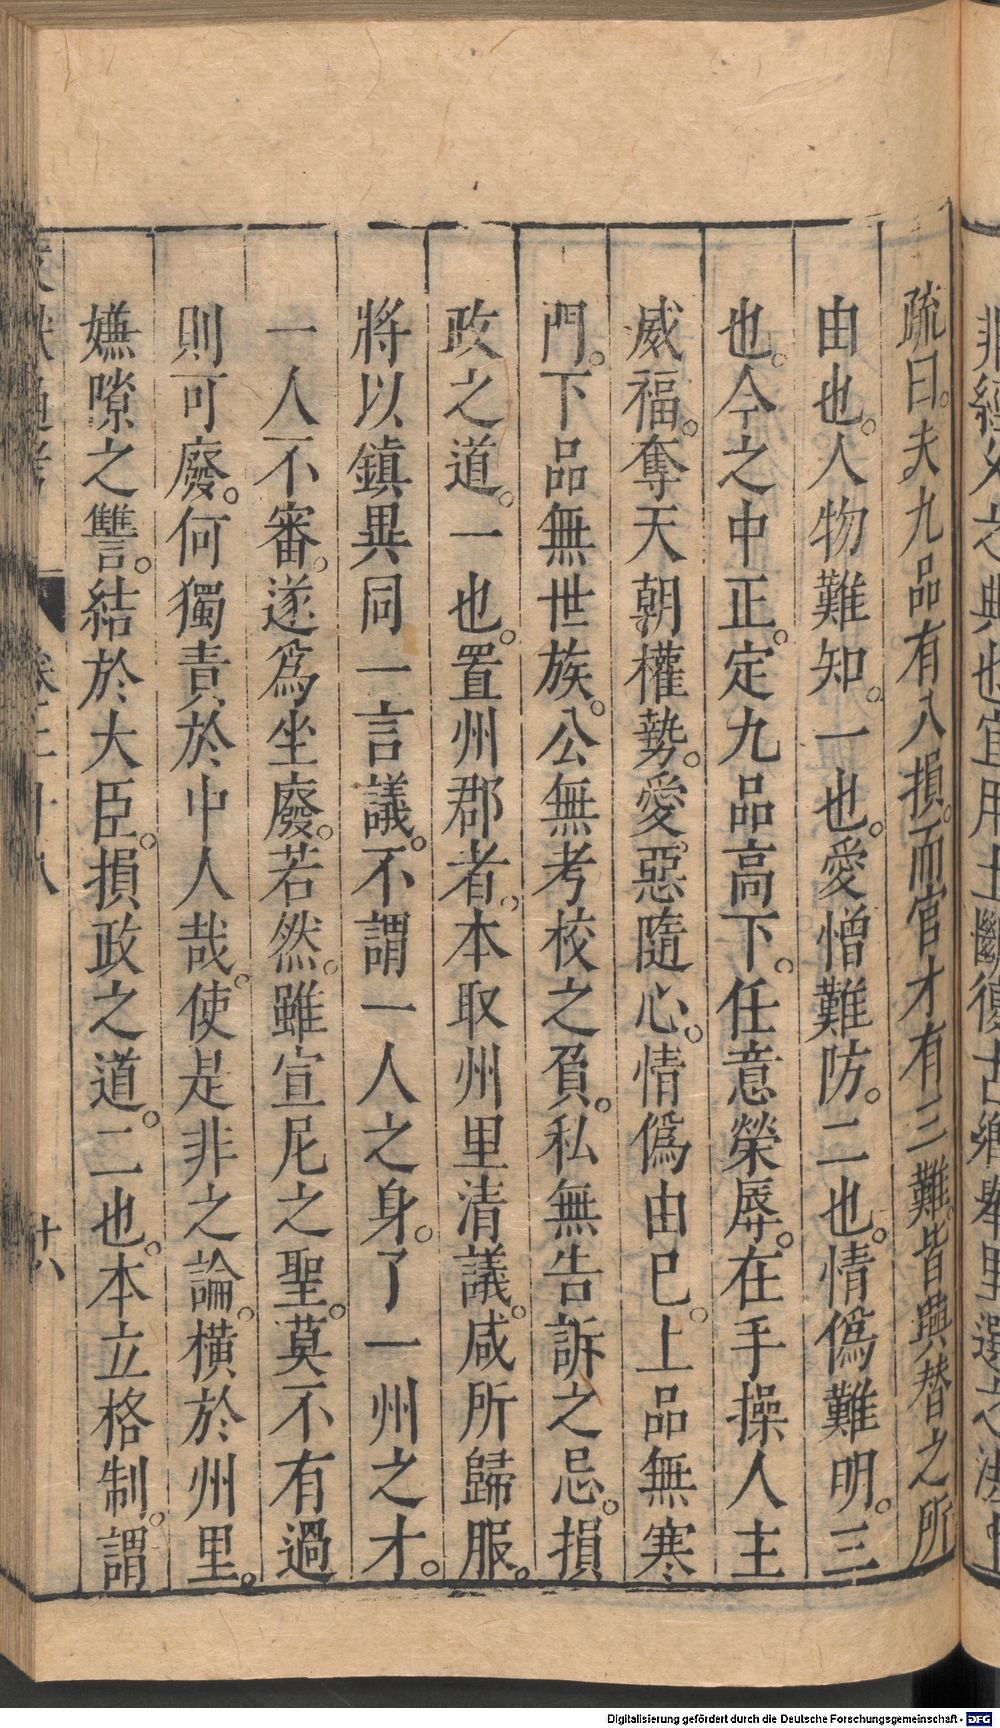 疏曰。夫九品有八損。而官才有三難。皆興替之所
由也。人物難知。一也。愛憎難防。二也。情僞難明。三
也。今之中正。定九品高下。任意榮辱。在手操人主
威福。奪天朝權勢。愛惡隨心。情僞由己。上品無寒
門。下品無世族。公無考校之負。私無告訴之忌。損
政之道。一也。置州郡者。本取州里清議。咸所歸服。
將以鎮異同一言議。不謂一人之身。了一州之才。
一人不審。遂爲坐廢。若然。雖宣尼之聖。莫不有過
則可廢。何獨責於中人哉。使是非之論。橫於州里。
嫌隙之讐。結於大臣。損政之道。二也。本立格制。謂
卷二十八
廿八
Digitalisierung gefördert durch die Deutsche Forschungsgemeinschaft - DFG